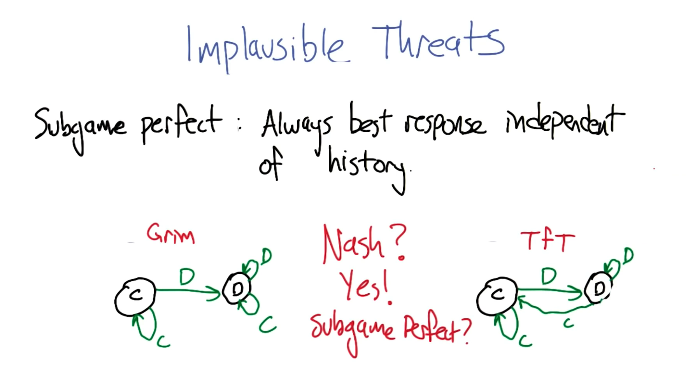 Implausible Threats
Subgame perfect : Always best response independent
of history.
Grim
C
D
D
D
C
C
Nash?
Yes!
Subgame Perfect?
TfT
C
D
D
D
C
C